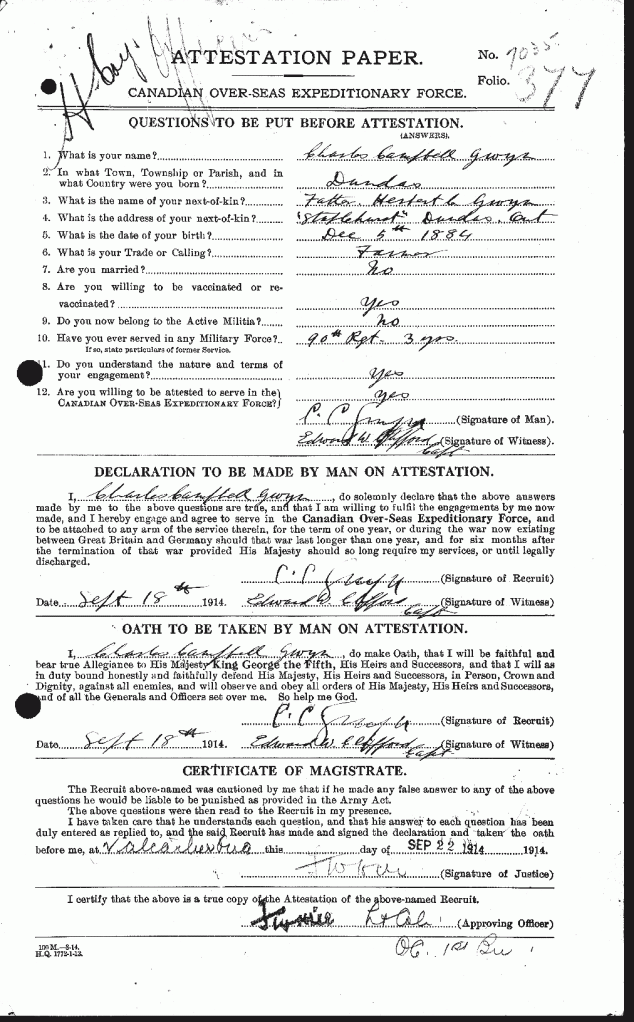 ATTESTATION PAPER.
No. 7035
Folio. 377
CANADIAN OVER-SEAS EXPEDITIONARY FORCE.
QUESTIONS TO BE PUT BEFORE ATTESTATION.
(ANSWERS).
1. What is your name? Charles Campbell Gwyn
2. In what Town, Township or Parish, and in
what Country were you born? Dundas
3. What is the name of your next-of-kin? Father. Herbert C. Gwyn
4. What is the address of your next-of-kin? Dundas. Ont
5. What is the date of your birth? Dec 5th 1884
6. What is your Trade or Calling? Farmer
7. Are you married? No
8. Are you willing to be vaccinated or re-
vaccinated? Yes
9. Do you now belong to the Active Militia? No
10. Have you ever served in any Military Force? 90th Rgt. 3 yrs.
If so, state particulars of former Service.
11. Do you understand the nature and terms of
your engagement? Yes
12. Are you willing to be attested to serve in the
CANADIAN OVER-SEAS EXPEDITIONARY FORCE? yes
C. C. Gwyn (Signature of Man).
Edward W. Clifford Capt (Signature of Witness).
DECLARATION TO BE MADE BY MAN ON ATTESTATION.
I, Charles Campbell Gwyn, do solemnly declare that the above answers
made by me to the above questions are true, and that I am willing to fulfil the engagements by me now
made, and I hereby engage and agree to serve in the Canadian Over-Seas Expeditionary Force, and
to be attached to any arm of the service therein, for the term of one year, or during the war now existing
between Great Britain and Germany should that war last longer than one year, and for six months after
the termination of that war provided His Majesty should so long require my services, or until legally
discharged.
C. C. Gwyn (Signature of Recruit)
Date Sept 18th 1914. Edward W. Clifford Capt (Signature of Witness)
OATH TO BE TAKEN BY MAN ON ATTESTATION.
I, Charles Campbell Gwyn, do make Oath, that I will be faithful and
bear true Allegiance to His Majesty King George the Fifth, His Heirs and Successors, and that I will as
in duty bound honestly and faithfully defend His Majesty, His Heirs and Successors, in Person, Crown and
Dignity, against all enemies, and will observe and obey all orders of His Majesty, His Heirs and Successors,
and of all the Generals and Officers set over me. So help me God.
C. C. Gwyn (Signature of Recruit)
Date Sept 18th 1914. Edward W. Clifford Capt (Signature of Witness)
CERTIFICATE OF MAGISTRATE.
The Recruit above-named was cautioned by me that if he made any false answer to any of the above
questions he would be liable to be punished as provided in the Army Act.
The above questions were then read to the Recruit in my presence.
I have taken care that he understands each question, and that his answer to each question has been
duly entered as replied to, and the said Recruit has made and signed the declaration and taken the oath
before me, at Valcartier this day of SEP 22 1914 1914.
(Signature of Justice)
I certify that the above is a true copy of the Attestation of the above-named Recruit.
Lt Col. (Approving Officer)
100 M.—8-14.
H.Q. 1772-1-13.
OC. 1st